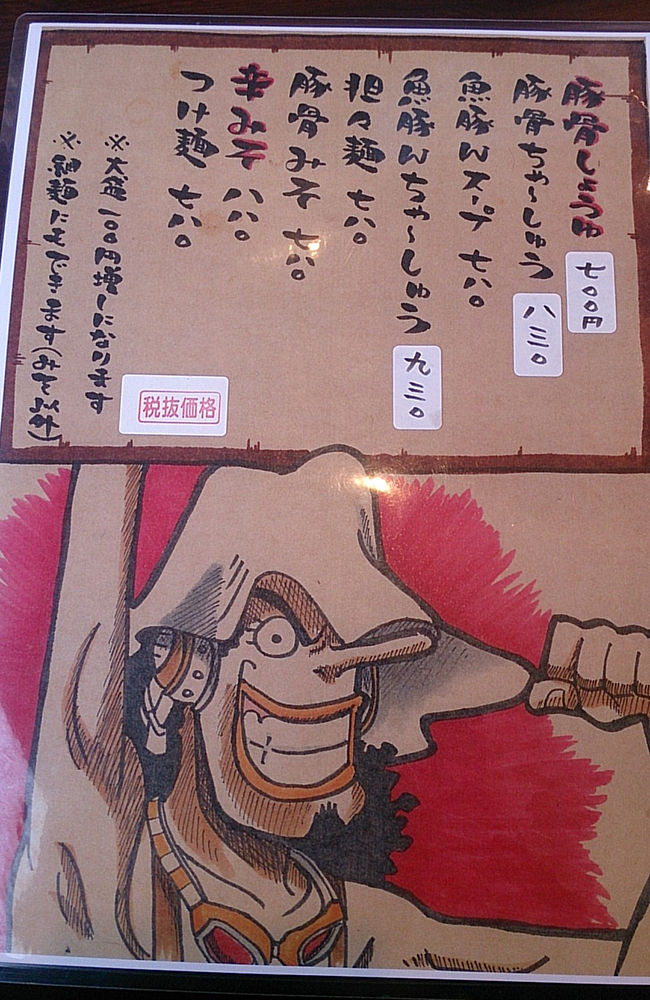 豚骨しょうゆ 七〇〇円
豚骨ちゃ〜しゅう 八三〇
魚豚んスープ 七八〇
魚豚んちゃ〜しゅう 九三〇
担々麺 七八〇
豚骨みそ 七八〇
辛みそ 八八〇
つけ麺 七八〇
※大盛一〇〇円増しになります
※細麺にもできます(みそ以外)
税抜価格